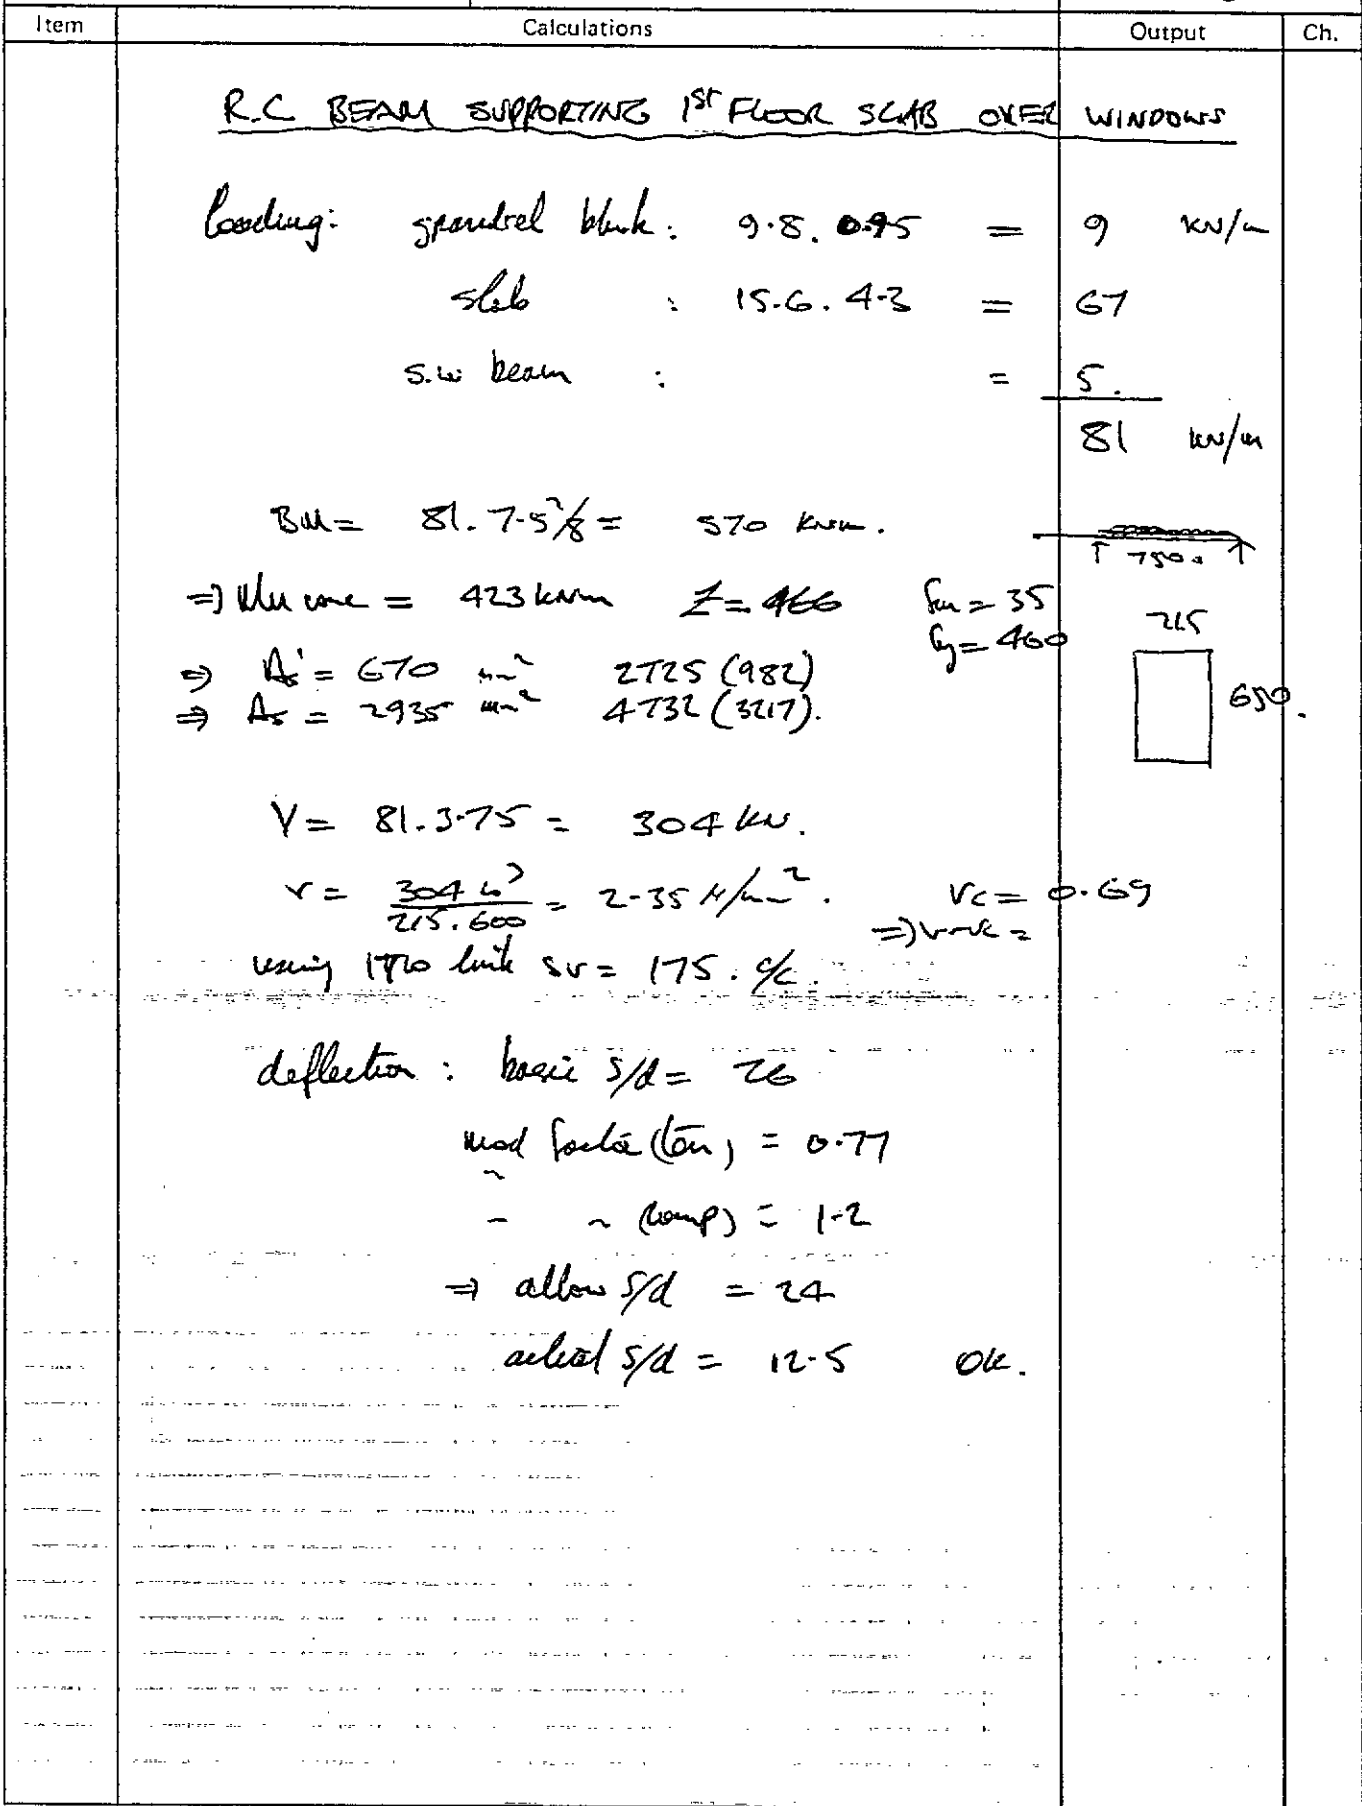 Item Calculations Output Ch.
R.C BEAM SUPPORTING 1ST FLOOR SLAB OVER WINDOWS
loading: spandrel blwk: 9.8. 0.95 = 9 kN/m
slab : 15.6. 4.3 = 67
s.w beam : = 5.
81 kN/m
BM = 81. 7.5²/8 = 570 kNm.
7500
⇒ Mu conc = 423 kNm Z = 466 fcu = 35
fy = 460
215
⇒ As' = 670 mm² 2T25 (982)
⇒ As = 2935 mm² 4T32 (3217).
650.
V = 81. 3.75 = 304 kN.
v = 304 10³ / 215. 600 = 2.35 N/mm². vc = 0.69
⇒ v-vc =
using link sv = 175. c/c.
deflection : basic s/d = 26
mod factor (ten) = 0.77
~ ~ (comp) = 1.2
⇒ allow s/d = 24
actual s/d = 12.5 OK.